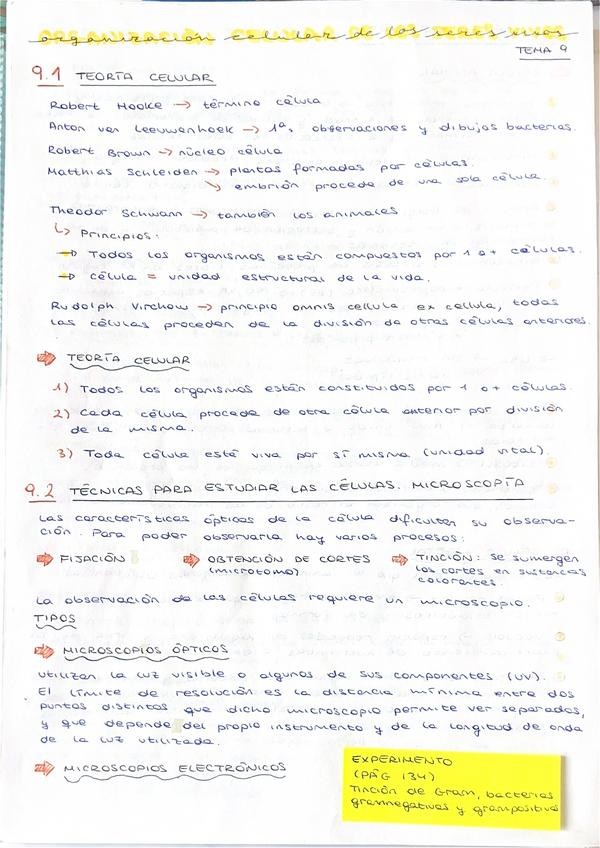 organización celular de los seres vivos
TEMA 9
9.1 TEORÍA CELULAR
Robert Hooke → término célula
Anton van Leeuwenhoek → 1ª, observaciones y dibujos bacterias.
Robert Brown → núcleo célula
Matthias Schleiden → plantas formadas por células.
↘ embrión procede de una sola célula.
Theodor Schwann → también los animales
↳ Principios:
→ Todos los organismos están compuestos por 1 o + células.
→ célula = unidad estructural de la vida.
Rudolph Virchow → principio omnis cellula ex cellula, todas
las células proceden de la división de otras células anteriores.
⇒ TEORÍA CELULAR
1) Todos los organismos están constituidos por 1 o + células.
2) Cada célula procede de otra célula anterior por división
de la misma.
3) Toda célula está viva por sí misma (unidad vital).
9.2 TÉCNICAS PARA ESTUDIAR LAS CÉLULAS. MICROSCOPÍA
Las características ópticas de la célula dificultan su observa-
ción. Para poder observarla hay varios procesos:
⇒ FIJACIÓN ⇒ OBTENCIÓN DE CORTES ⇒ TINCIÓN: se sumergen
(microtomo) los cortes en sustancias
colorantes.
La observación de las células requiere un microscopio.
TIPOS
⇒ MICROSCOPIOS ÓPTICOS
utilizan la luz visible o algunos de sus componentes (UV).
El límite de resolución es la distancia mínima entre dos
puntos distintos que dicho microscopio permite ver separados,
y que depende del propio instrumento y de la longitud de onda
de la luz utilizada.
⇒ MICROSCOPIOS ELECTRÓNICOS
EXPERIMENTO
(PÁG 134)
Tinción de Gram, bacterias
gramnegativas y grampositivas